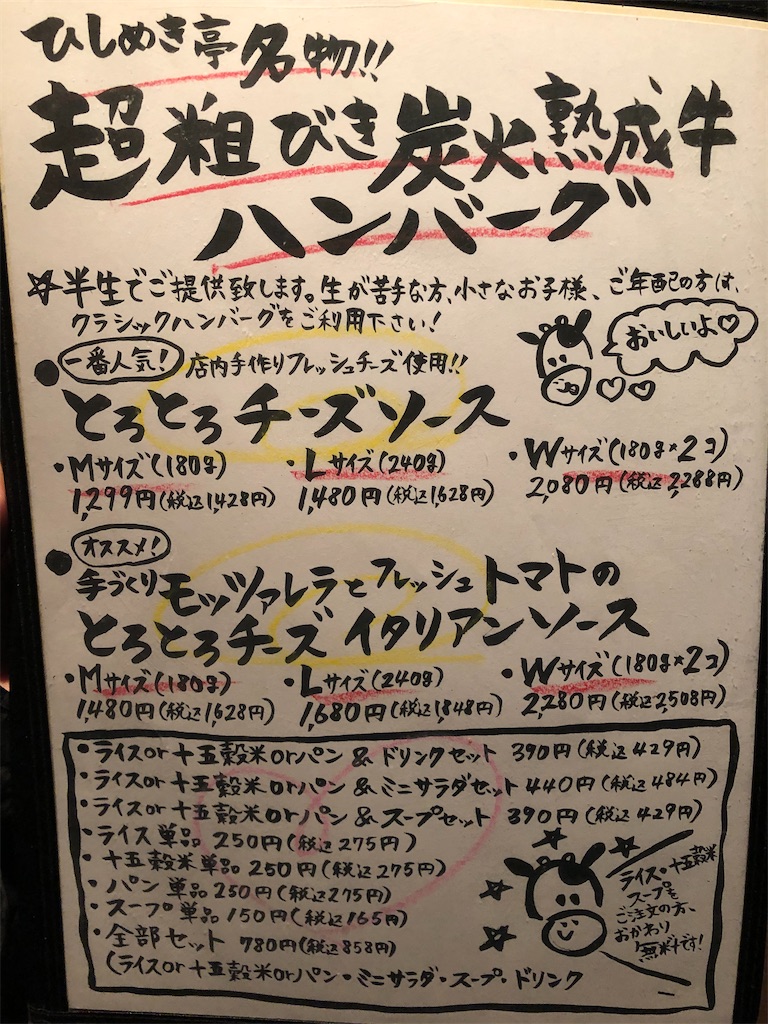 ひしめき亭名物!!
超粗びき炭火熟成牛
ハンバーグ
☆半生でご提供致します。生が苦手な方、小さなお子様、ご年配の方は、
クラシックハンバーグをご利用下さい!
おいしいよ♡
・一番人気! 店内手作りフレッシュチーズ使用!!
とろとろチーズソース
・Mサイズ(180g) ・Lサイズ(240g) ・Wサイズ(180g×2コ)
1,299円(税込1,428円) 1,480円(税込1,628円) 2,080円(税込2,288円)
・オススメ!
手づくりモッツァレラとフレッシュトマトの
とろとろチーズイタリアンソース
・Mサイズ(180g) ・Lサイズ(240g) ・Wサイズ(180g×2コ)
1,480円(税込1,628円) 1,680円(税込1,848円) 2,280円(税込2,508円)
・ライスor十五穀米orパン & ドリンクセット 390円(税込429円)
・ライスor十五穀米orパン & ミニサラダセット 440円(税込484円)
・ライスor十五穀米orパン & スープセット 390円(税込429円)
・ライス単品 250円(税込275円)
・十五穀米単品 250円(税込275円)
・パン単品 250円(税込275円)
・スープ単品 150円(税込165円)
・全部セット 780円(税込858円)
(ライスor十五穀米orパン・ミニサラダ・スープ・ドリンク
ライス・十五穀米
スープを
ご注文の方、
おかわり
無料です!